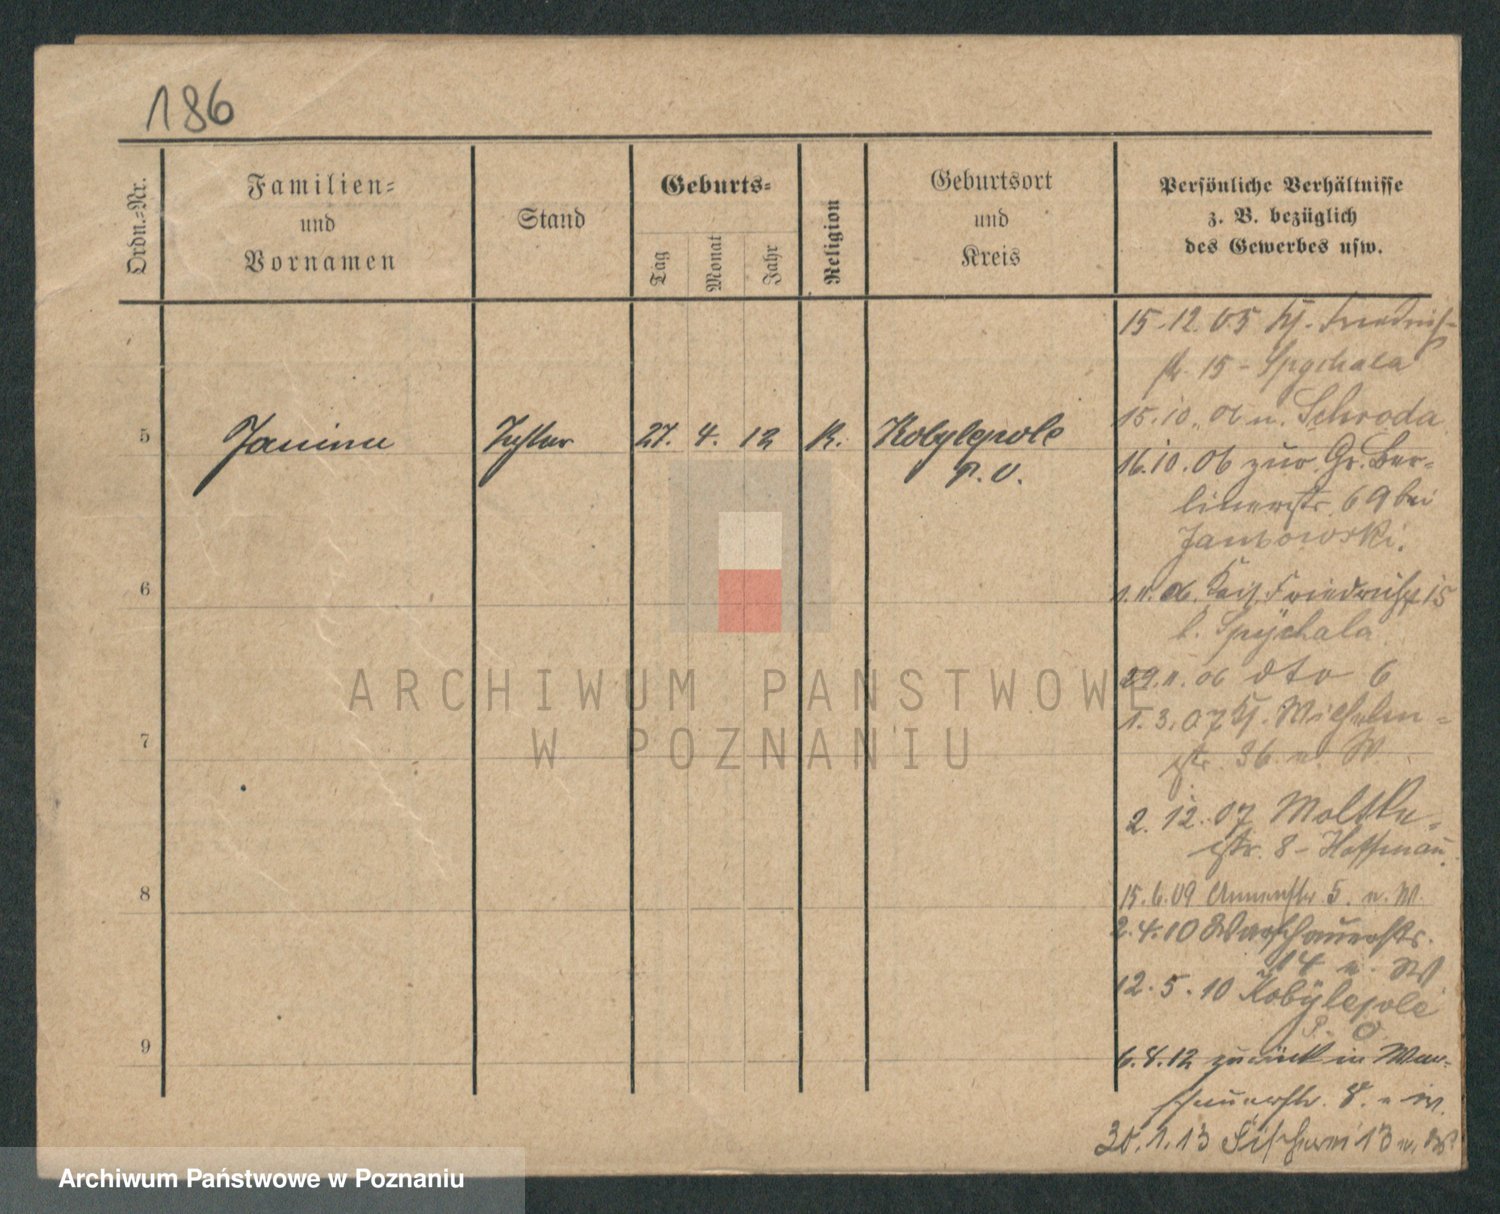 186
Ordn.-Nr.
Familien-
und
Vornamen
Stand
Geburts-
Tag
Monat
Jahr
Religion
Geburtsort
und
Kreis
Persönliche Verhältnisse
z. B. bezüglich
des Gewerbes usw.
15.12.05 Friedrich-
15 - Spychala
15.10.06 n. Schroda
16.10.06 zur Gr. Ber-
linerstr. 69 bei
5 Janina Tochter 27. 4. 12 K. Kobylepole
P. O.
6
1.11.06. Friedrichstr 15
b. Spychala
29.11.06 dto 6
1.3.07 Wilhelm-
str. 36 n. W.
7
2.12.07 Moltke-
str. 8 - Hoffmann.
8
15.6.09 5. n. W.
2.4.10 Warschauerstr.
14 n. W.
12.5.10 Kobylepole
P. O.
9
6.8.12 zurück in War-
schauerstr. 8. n W.
30.1.13 13 n. W.
ARCHIWUM PAŃSTWOWE
W POZNANIU
Archiwum Państwowe w Poznaniu